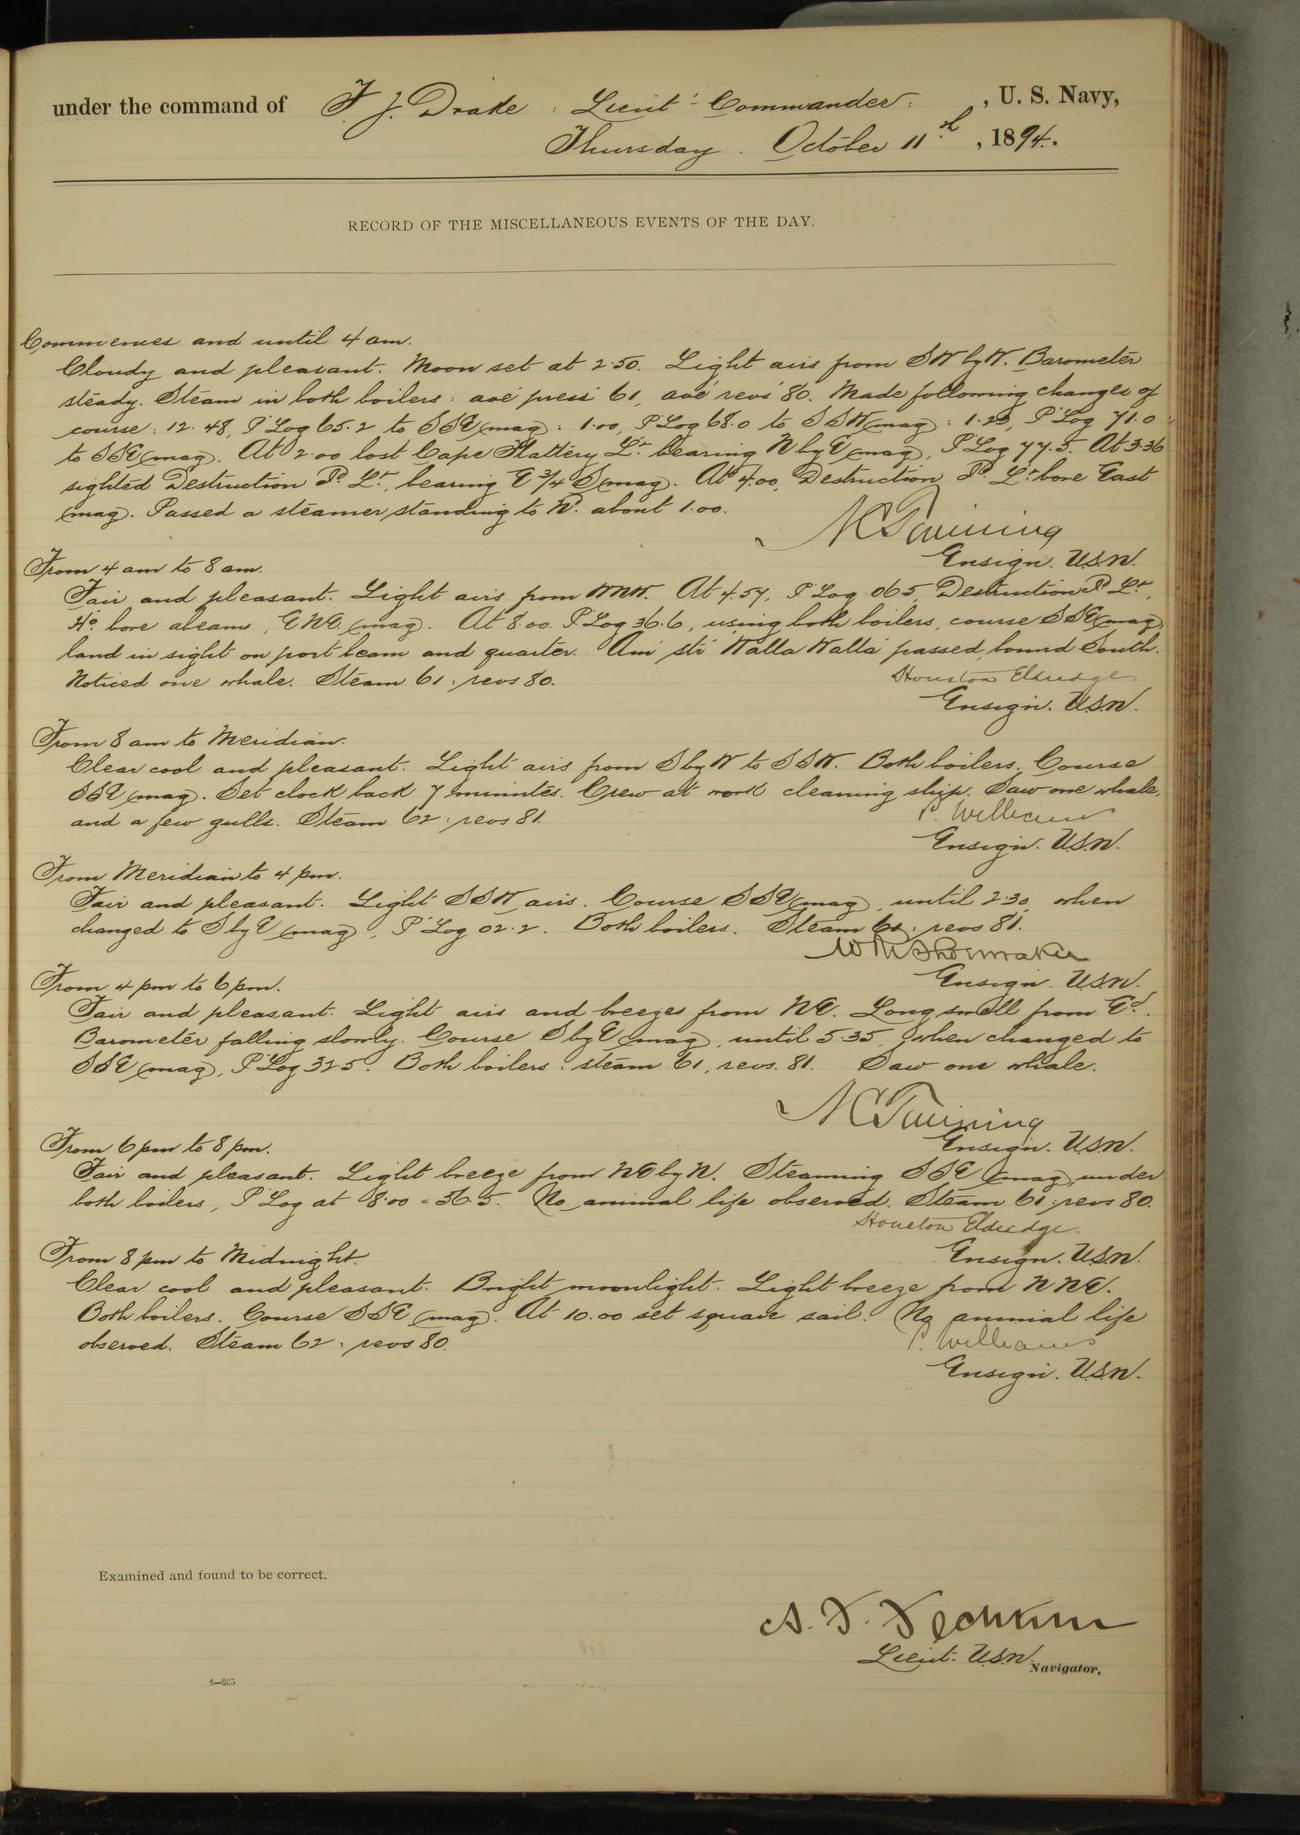 under the command of F. J. Drake : Lieut. Commander. , U. S. Navy,
Thursday . October 11th , 1894.
RECORD OF THE MISCELLANEOUS EVENTS OF THE DAY.
Commences and until 4 am.
Cloudy and pleasant. Moon set at 2.50. Light airs from SW by W. Barometer
steady. Steam in both boilers : ave press 61, ave revs 80. Made following changes of
course : 12.48, P Log 65.2 to SSE (mag) : 1.00, P Log 68.0 to SSW (mag) : 1.23, P Log 71.0
to SSE (mag). At 2.00 lost Cape Flattery Lt bearing N by E (mag), P Log 77.5. At 3.36
sighted Destruction Id Lt, bearing E 3/4 S (mag). At 4.00, Destruction Id Lt bore East
(mag). Passed a steamer standing to Nd. about 1.00.
N C Twining
Ensign. U.S.N.
From 4 am to 8 am.
Fair and pleasant. Light airs from WNW. At 4.57, P Log 06.5, Destruction Id Lt,
Ho bore abeam, ENE (mag). At 8.00 P Log 36.6, using both boilers, course SSE (mag)
land in sight on port beam and quarter. Am str Walla Walla passed, bound South.
Noticed one whale. Steam 61 : revs 80.
Houston Eldredge
Ensign. U.S.N.
From 8 am to Meridian.
Clear cool and pleasant. Light airs from S by W to SSW. Both boilers. Course
SSE (mag). Set clock back 7 minutes. Crew at work cleaning ship. Saw one whale,
and a few gulls. Steam 62 : revs 81.
P. Williams
Ensign. U.S.N.
From Meridian to 4 pm.
Fair and pleasant. Light SSW airs. Course SSE (mag), until 2.30, when
changed to S by E (mag), P Log 02.2. Both boilers. Steam 61 : revs 81.
W R Shoemaker
Ensign. U.S.N.
From 4 pm to 6 pm.
Fair and pleasant. Light airs and breezes from NE. Long swell from Ed.
Barometer falling slowly. Course S by E (mag), until 5.35, when changed to
SSE (mag), P Log 32.5. Both boilers : steam 61, revs. 81. Saw one whale.
N C Twining
Ensign. U.S.N.
From 6 pm to 8 pm.
Fair and pleasant. Light breeze from NE by N. Steaming SSE (mag) under
both boilers, P Log at 8.00 = 56.5. No animal life observed. Steam 61 : revs 80.
Houston Eldredge.
Ensign. U.S.N.
From 8 pm to Midnight.
Clear cool and pleasant. Bright moonlight. Light breeze from NNE.
Both boilers. Course SSE (mag). At 10.00 set square sail. No animal life
observed. Steam 62 : revs 80.
P. Williams
Ensign. U.S.N.
Examined and found to be correct.
A. F. Fechteler
Lieut. U.S.N. Navigator.